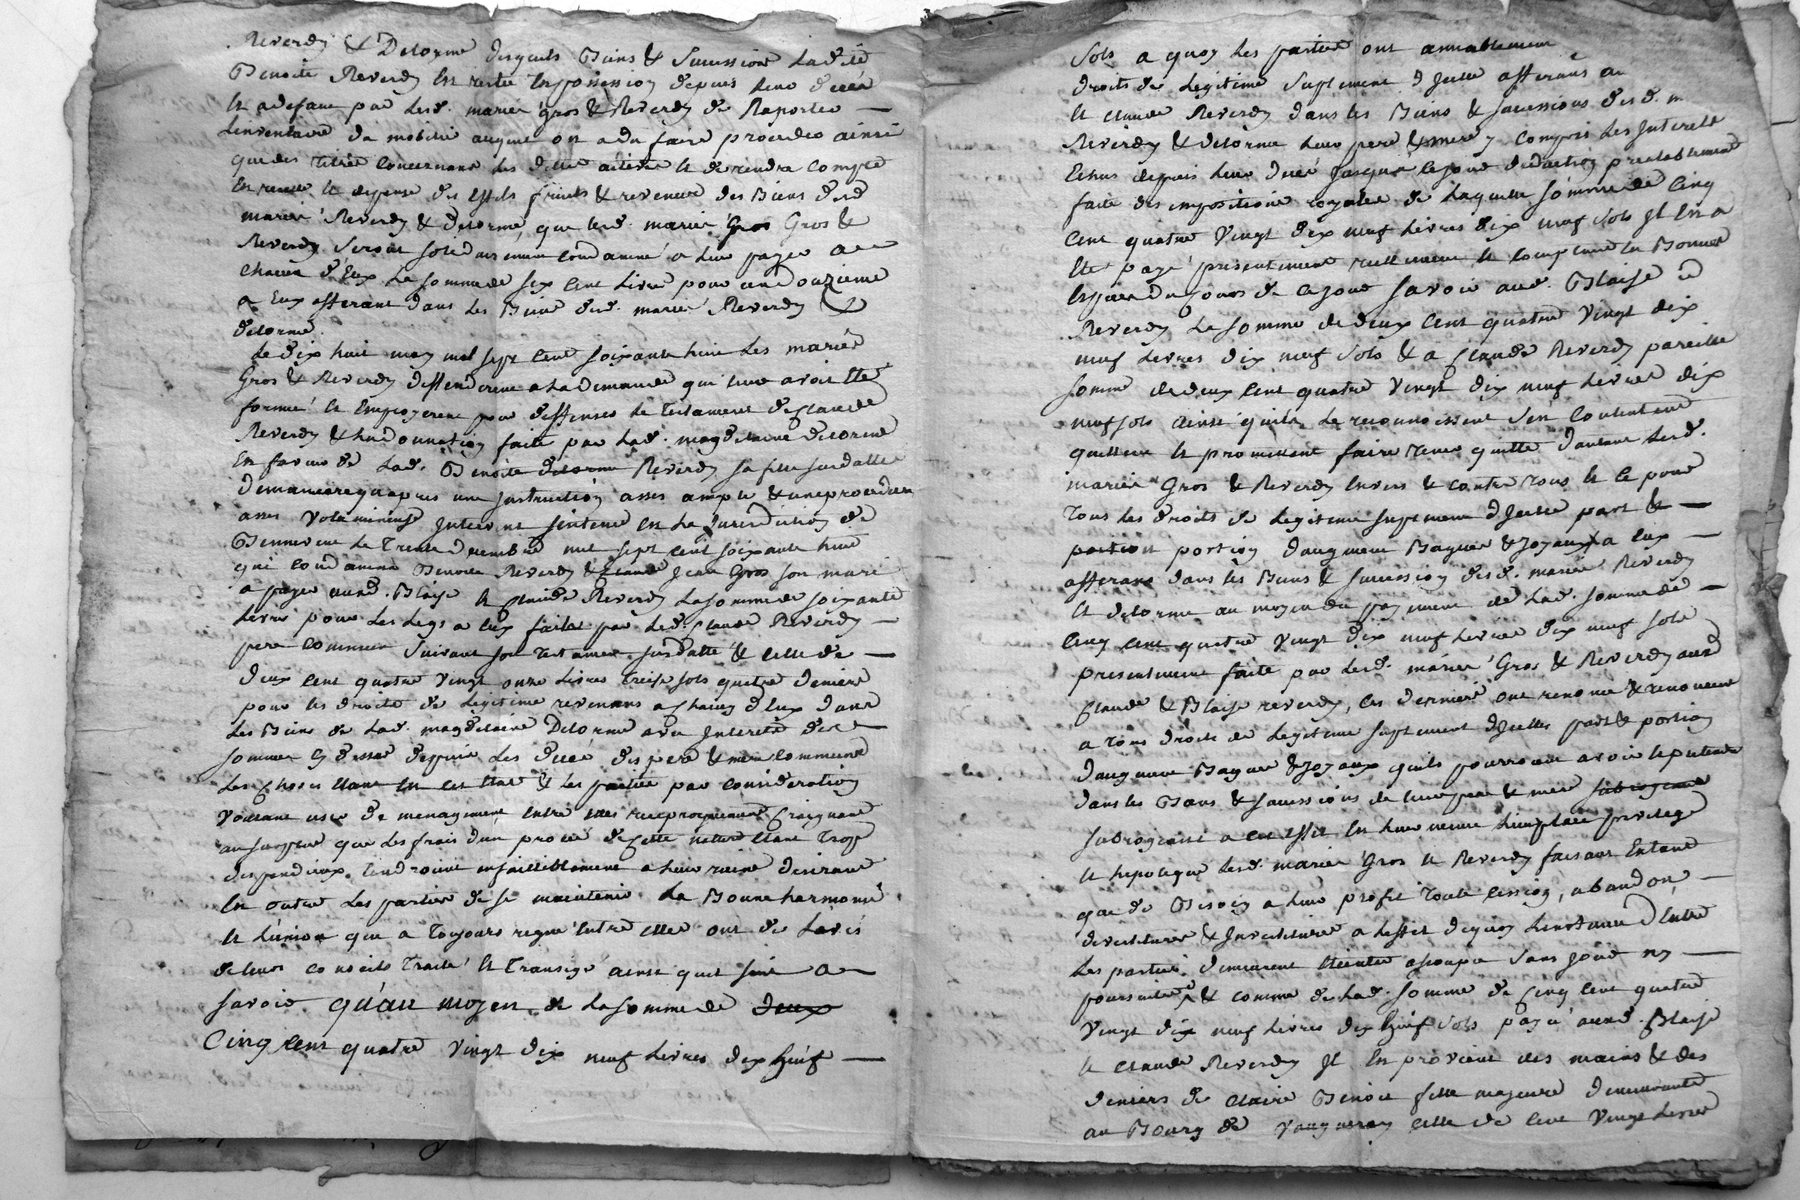 Reverdy & Delorme desquels Biens & Succession Ladite
Benoite Reverdy En restée En possession depuis Leur décès
Et a defaut par Lesd. mariés Gros & Reverdy de Raporter
Linventaire du mobilié auquel on a du faire proceder ainsi
que des titres Concernans les dettes actives Et de rendre Compte
En recette & depense des fruits & revenus des Biens desd
mariés Reverdy & Delorme, que lesd. mariés Gros &
Reverdy Seroint solidairement Condamné a Leur payer a
Chacun d'Eux La Somme de Six Cent Livres pour un douzieme
a Eux afferant dans Les Biens desd. mariés Reverdy &
delorme.
Le dix huit may mil sept Cent soixante huit Les mariés
Gros & Reverdy deffendirent a La demande qui Leur avoit Eté
formée Et Employerent pour deffenses Le Testament de Claude
Reverdy & La donnation faite par Lad. magdelaine delorme
En faveur de Lad. Benoite Reverdy sa fille susdatté
demaniere quapres une Instruction asses ample & une procedure
asses Volumineuse Intervint sentence En La Jurisdiction de
Le Trente mil sept Cent soixante huit
qui Condamne Benoite Reverdy & Jean Gros son mari
a payer aud. Blaise Et Claude Reverdy La somme de soixante
Livres pour Les Legs a Eux faits par Led. Claude Reverdy
pere Commun Suivant son Testament susdatté & Celle de
deux Cent quatre Vingt onze Livres Treize sols quatre deniers
pour les droits de Legitime revenans a Chacun d'Eux dans
Les Biens de Lad. magdelaine Delorme avec Interets des
sommes Cy dessus depuis Les décès des pere & mere Communs
Les Choses Etant En cet Etat & Les parties par Consideration
Voulant user de menagement Entre Elles reciproquement Craignant
au surplus que Les frais d'un procès de Cette nature Etant Trop
dispendieux Tendroint infailliblement a Leur ruine desirant
En outre Les parties de se maintenir La Bonne harmonie
Et L'union qui a Toujours regné Entre Elles ont de Lavis
de Leurs Conseils Traité Et Transigé ainsi quil suit a
savoir qu'au moyen de La somme de deux
Cinq Cent quatre Vingt dix neuf Livres dix huit
Sols a quoy Les parties ont amiablement
droits de Legitime Suplement d'Icelle afferans au
Et Claude Reverdy dans les Biens & successions desd. m
Reverdy & delorme Leur pere & mere y Compris Les Interets
Echus depuis Leur décès Jusqu'a Ce Jour deduction prealablement
faite des impositions royales de Laquelle somme de Cinq
Cent quatre Vingt dix neuf Livres dix neuf sols Il En a
Eté payé presentement reellement & Comptant En Bonnes
Especes du Cours de Ce Jour savoir aud. Blaise
Reverdy La somme de deux Cent quatre Vingt dix
neuf Livres dix neuf sols & a Claude Reverdy pareille
somme de deux Cent quatre Vingt dix neuf Livres dix
neuf sols ainsi quils Le reconnoissent s'En Contentent
quittent & promettent faire Tenir quitte d'autant Lesd.
mariés Gros & Reverdy Envers & Contre Tous & Ce pour
Tous Les droits de Legitime suplement d'Icelle part &
portion d'augment Bagues & Joyaux a Eux
afferans dans les Biens & succession desd. mariés Reverdy
Et delorme au moyen du payement de Lad. somme de
Cinq Cent quatre Vingt dix neuf Livres dix neuf sols
presentement faite par Lesd. mariés Gros & Reverdy aud
Claude & Blaise reverdy, Ces derniers ont renoncé & renoncent
a Tous droits de Legitime suplement d'Icelles part & portion
d'augment Bagues & Joyaux quils pourroient avoir Et pretendre
dans les Biens & successions de Leur pere & mere subrogeant
subrogeant a Cet Effet En Leur même Lieu place privilege
Et hipoteque Lesd. mariés Gros & Reverdy faisant Entant
que de Besoin a Leur profit Toute Cession, abandon,
devestiture & Investiture a Leffet dequoy Linstance d'Entre
Les parties demeurent Eteinte assoupie sans pouvoir ny
poursuitte & Comme de Lad. somme de Cinq Cent quatre
Vingt dix neuf Livres dix huit sols payé aud. Blaise
Et Claude Reverdy Il En provient des mains & des
deniers de Claire Benoit fille majeure demeurante
au Bourg de Celle de Cent Vingt Livres